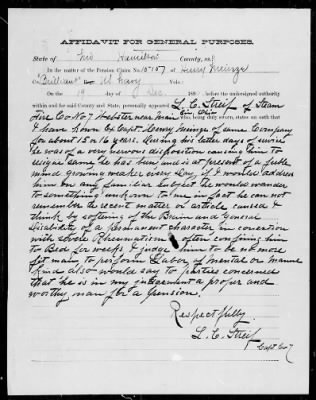 AFFIDAVIT FOR GENERAL PURPOSES.
State of Ohio Hamilton County, ss:
In the matter of the Pension Claim No. 10157 of Henry
"Brilliant" U.S. Navy Vols.
On the 19 day of Dec. 189 before the undersigned authority
within and for said County and State, personally appeared L. C. Streif of Steam
Fire Co No 7 Webster near Main Cin Ohio who, being duly sworn, states on oath that
I have known Ex Capt. Henry of same Company
for about 15 or 16 years. During his latter days of service
he was of a very nervous disposition causing him to
resign same, he has been and is at present of a feeble
mind growing weaker every day, if I would address
him on any familiar subject he would wander
to something unknown to me, in fact he can not
remember the recent matter or article caused I
think by softening of the Brain and General
Disability of a Permanent character in conection
with Acute Rheumatism often confining him
to Bed for weeks I judge him to be no more
fit man, to perform Labor of mental or manuel
kind also would say to parties concerned
that he is in my judgement a proper and
worthy man for a Pension.
Respectfully
L. C. Streif
Capt Co 7